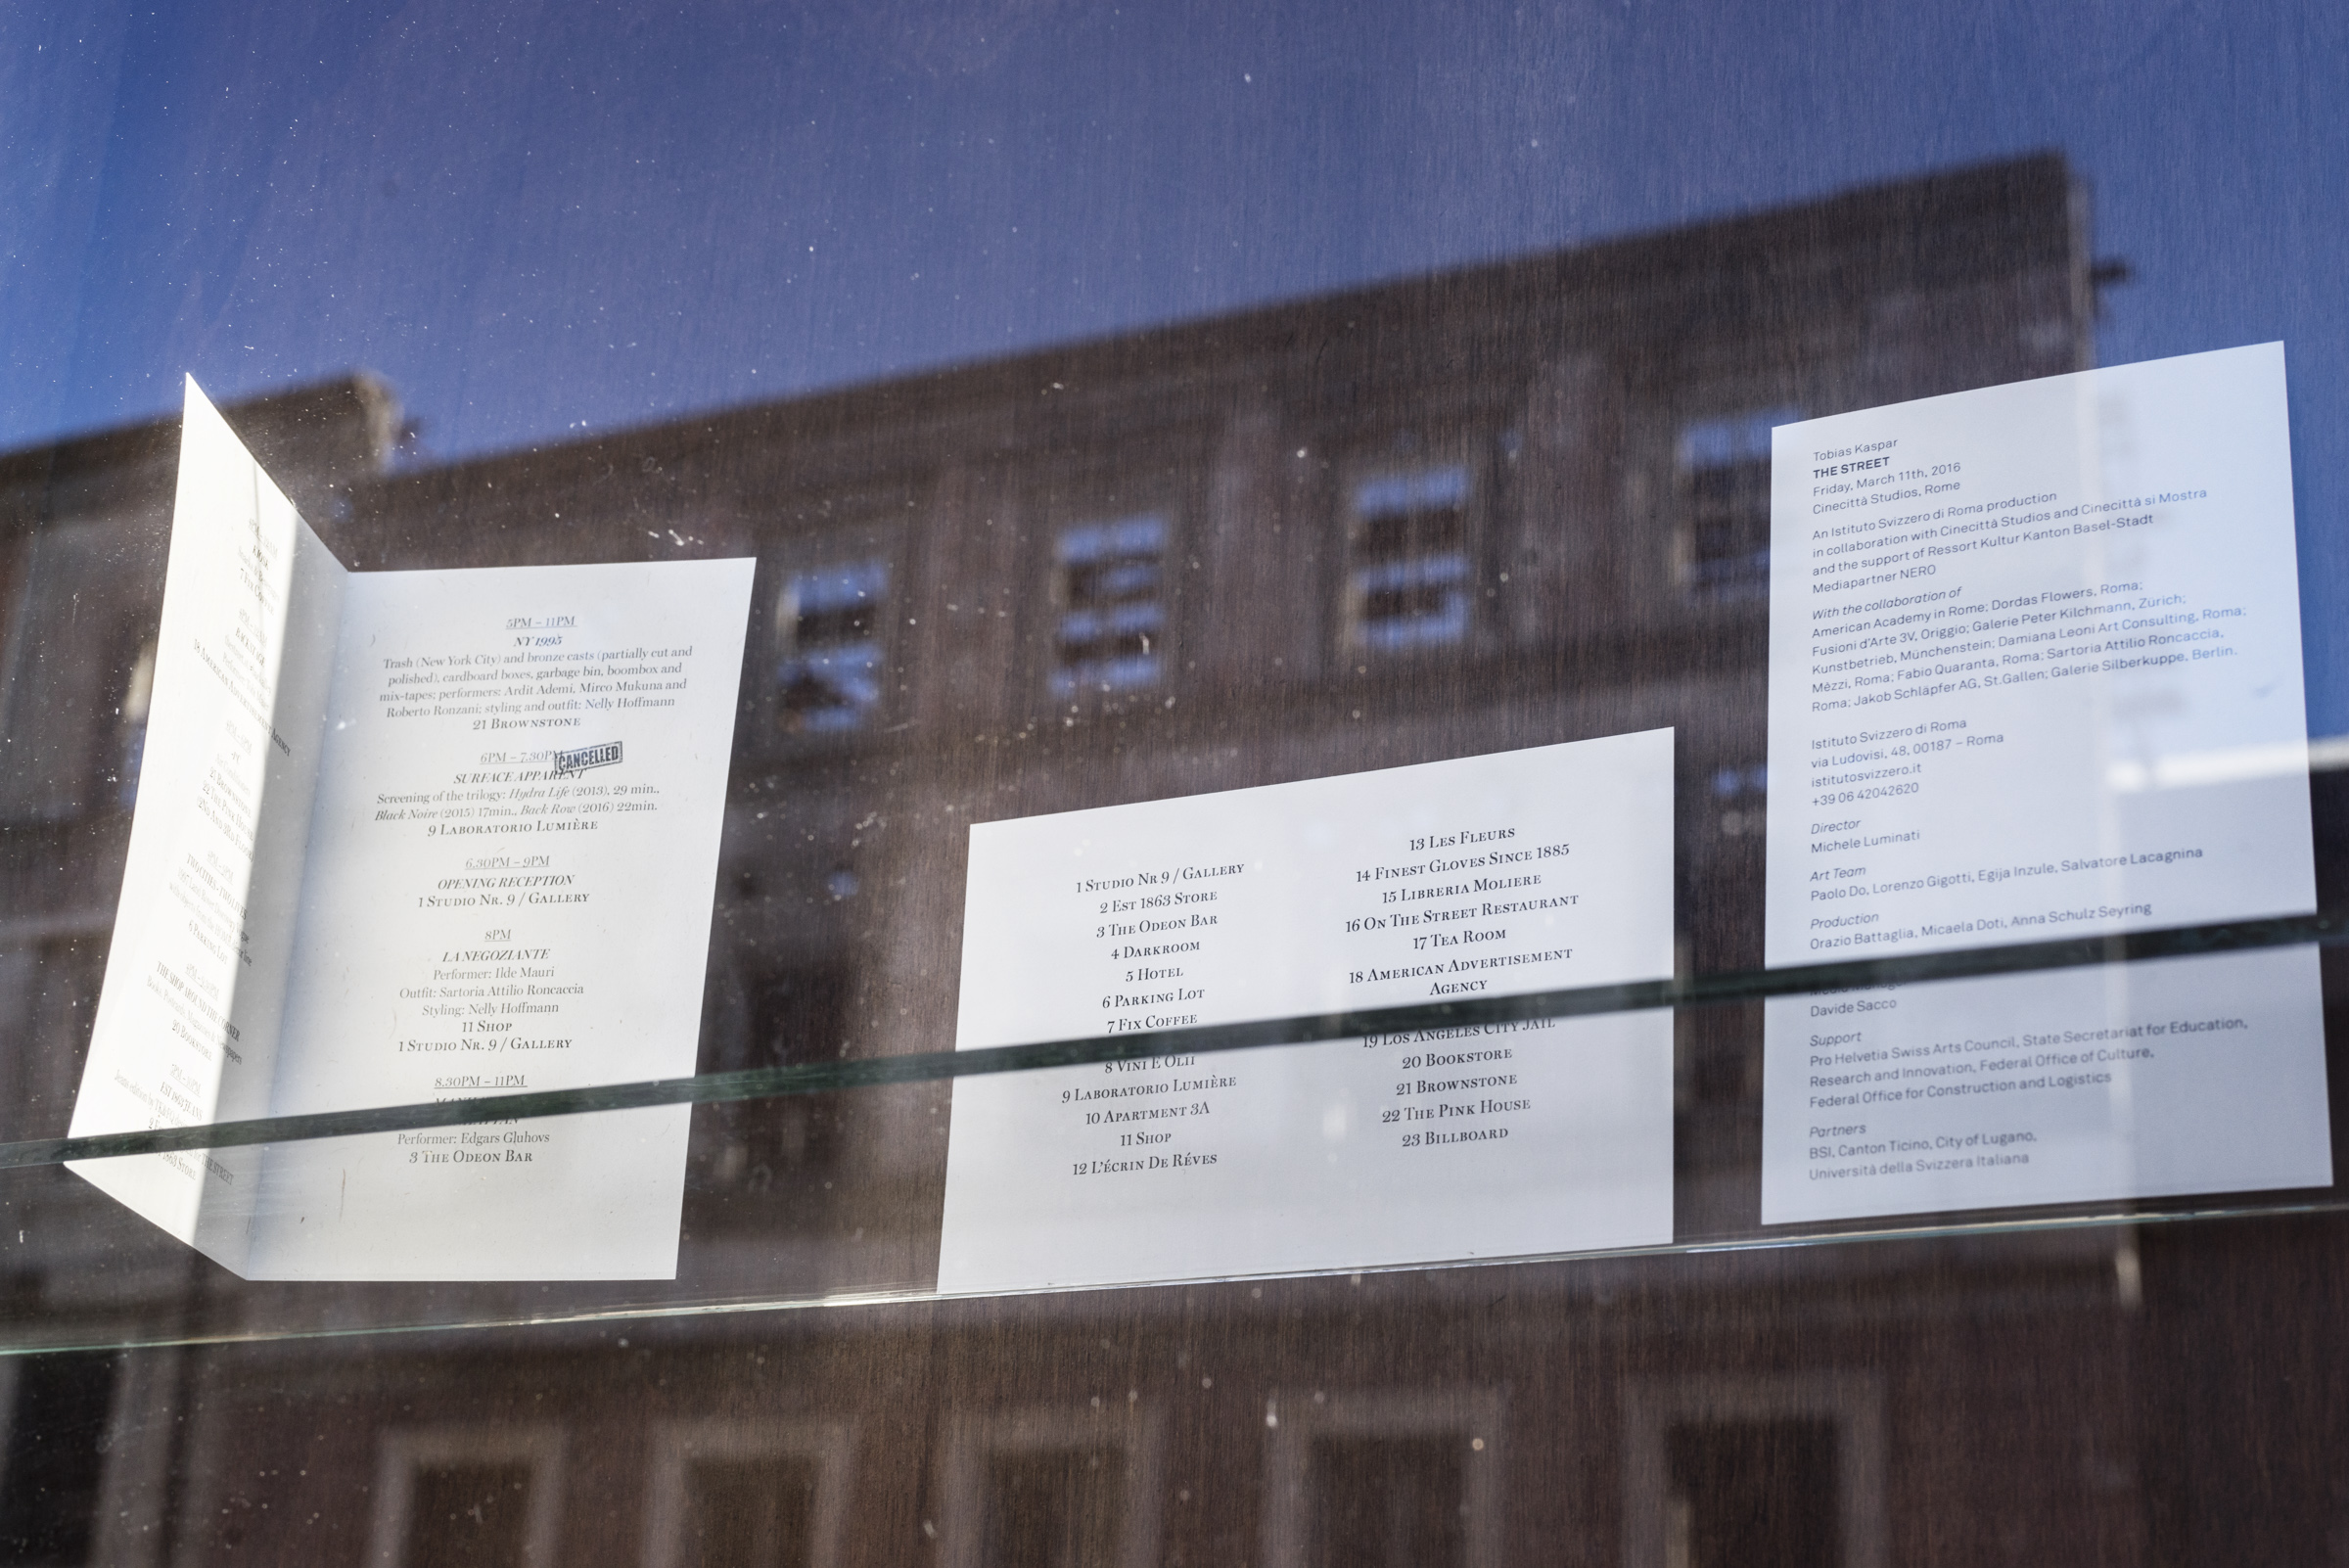 7 Fix Coffee
18 American Advertisement Agency
6 Parking Lot
THE SHOP AROUND THE CORNER
20 Bookstore
5PM – 11PM
NY 1995
Trash (New York City) and bronze casts (partially cut and
polished), cardboard boxes, garbage bin, boombox and
mix-tapes; performers: Ardit Ademi, Mirco Mukuna and
Roberto Ronzani; styling and outfit: Nelly Hoffmann
21 Brownstone
6PM – 7.30PM
CANCELLED
SURFACE APPARENT
Screening of the trilogy: Hydra Life (2013), 29 min.,
Black Noire (2015) 17min., Back Row (2016) 22min.
9 Laboratorio Lumière
6.30PM – 9PM
OPENING RECEPTION
1 Studio Nr. 9 / Gallery
8PM
LA NEGOZIANTE
Performer: Ilde Mauri
Outfit: Sartoria Attilio Roncaccia
Styling: Nelly Hoffmann
11 Shop
1 Studio Nr. 9 / Gallery
8.30PM – 11PM
Performer: Edgars Gluhovs
3 The Odeon Bar
1 Studio Nr 9 / Gallery
2 Est 1863 Store
3 The Odeon Bar
4 Darkroom
5 Hotel
6 Parking Lot
7 Fix Coffee
8 Vini E Olii
9 Laboratorio Lumière
10 Apartment 3A
11 Shop
12 L'écrin De Réves
13 Les Fleurs
14 Finest Gloves Since 1885
15 Libreria Moliere
16 On The Street Restaurant
17 Tea Room
18 American Advertisement
Agency
19 Los Angeles City Jail
20 Bookstore
21 Brownstone
22 The Pink House
23 Billboard
Tobias Kaspar
THE STREET
Friday, March 11th, 2016
Cinecittà Studios, Rome
An Istituto Svizzero di Roma production
in collaboration with Cinecittà Studios and Cinecittà si Mostra
and the support of Ressort Kultur Kanton Basel-Stadt
Mediapartner NERO
With the collaboration of
American Academy in Rome; Dordas Flowers, Roma;
Fusioni d'Arte 3V, Origgio; Galerie Peter Kilchmann, Zürich;
Kunstbetrieb, Münchenstein; Damiana Leoni Art Consulting, Roma;
Mézzi, Roma; Fabio Quaranta, Roma; Sartoria Attilio Roncaccia,
Roma; Jakob Schläpfer AG, St.Gallen; Galerie Silberkuppe, Berlin.
Istituto Svizzero di Roma
via Ludovisi, 48, 00187 – Roma
istitutosvizzero.it
+39 06 42042620
Director
Michele Luminati
Art Team
Paolo Do, Lorenzo Gigotti, Egija Inzule, Salvatore Lacagnina
Production
Orazio Battaglia, Micaela Doti, Anna Schulz Seyring
Davide Sacco
Support
Pro Helvetia Swiss Arts Council, State Secretariat for Education,
Research and Innovation, Federal Office of Culture,
Federal Office for Construction and Logistics
Partners
BSI, Canton Ticino, City of Lugano,
Università della Svizzera Italiana